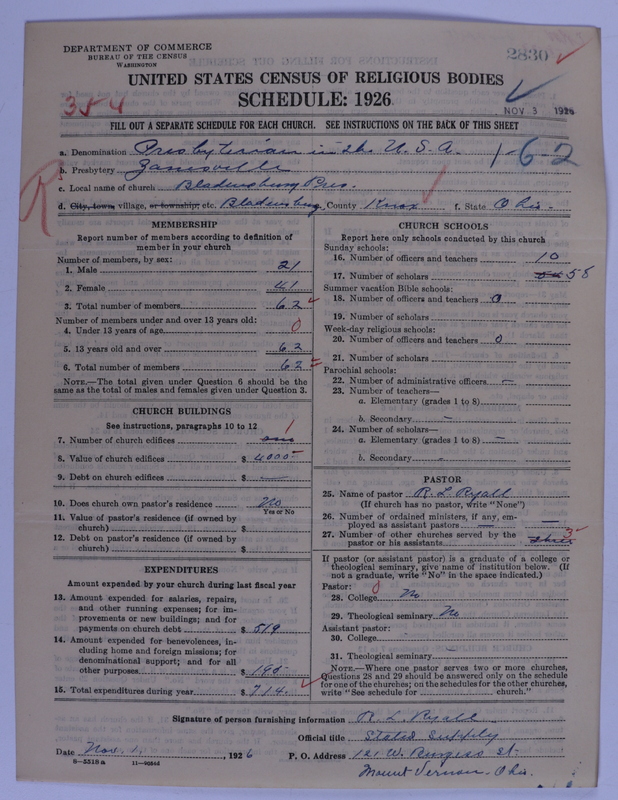 DEPARTMENT OF COMMERCE
BUREAU OF THE CENSUS
WASHINGTON
2830
UNITED STATES CENSUS OF RELIGIOUS BODIES
354
SCHEDULE: 1926
NOV 3 1926
FILL OUT A SEPARATE SCHEDULE FOR EACH CHURCH. SEE INSTRUCTIONS ON THE BACK OF THIS SHEET
a. Denomination Presbyterian in the U.S.A. 1-62
b. Presbytery Zanesville
c. Local name of church Bladensburg Pres.
d. City, town, village, or township, etc. Bladensburg County Knox f. State Ohio
R
MEMBERSHIP
Report number of members according to definition of
member in your church
Number of members, by sex:
1. Male 21
2. Female 41
3. Total number of members 62
Number of members under and over 13 years old:
4. Under 13 years of age 0
5. 13 years old and over 62
6. Total number of members 62
NOTE.—The total given under Question 6 should be the
same as the total of males and females given under Question 3.
CHURCH BUILDINGS
See instructions, paragraphs 10 to 12
7. Number of church edifices one 1
8. Value of church edifices $ 4000
9. Debt on church edifices $ —
10. Does church own pastor's residence No
Yes or No
11. Value of pastor's residence (if owned by
church) $
12. Debt on pastor's residence (if owned by
church) $
EXPENDITURES
Amount expended by your church during last fiscal year
13. Amount expended for salaries, repairs,
and other running expenses; for im-
provements or new buildings; and for
payments on church debt $ 519
14. Amount expended for benevolences, in-
cluding home and foreign missions; for
denominational support; and for all
other purposes $ 195
15. Total expenditures during year $ 714
CHURCH SCHOOLS
Report here only schools conducted by this church
Sunday schools:
16. Number of officers and teachers 10
17. Number of scholars 58
Summer vacation Bible schools:
18. Number of officers and teachers 0
19. Number of scholars
Week-day religious schools:
20. Number of officers and teachers 0
21. Number of scholars
Parochial schools:
22. Number of administrative officers —
23. Number of teachers—
a. Elementary (grades 1 to 8)
b. Secondary —
24. Number of scholars—
a. Elementary (grades 1 to 8) —
b. Secondary -
PASTOR
25. Name of pastor R. L. Ryall
(If church has no pastor, write "None")
26. Number of ordained ministers, if any, em-
ployed as assistant pastors — —
27. Number of other churches served by the
pastor or his assistants three 3
If pastor (or assistant pastor) is a graduate of a college or
theological seminary, give name of institution below. (If
not a graduate, write "No" in the space indicated.)
Pastor: 0
28. College No
29. Theological seminary No
Assistant pastor:
30. College
31. Theological seminary
NOTE.—Where one pastor serves two or more churches,
Questions 28 and 29 should be answered only on the schedule
for one of the churches; on the schedules for the other churches,
write "See schedule for church."
Signature of person furnishing information R. L. Ryall
Official title Stated Supply
Date Nov. 1, 1926 P. O. Address 121 W. Burgess St.
8—5518a 11—9064d
Mount Vernon - Ohio.